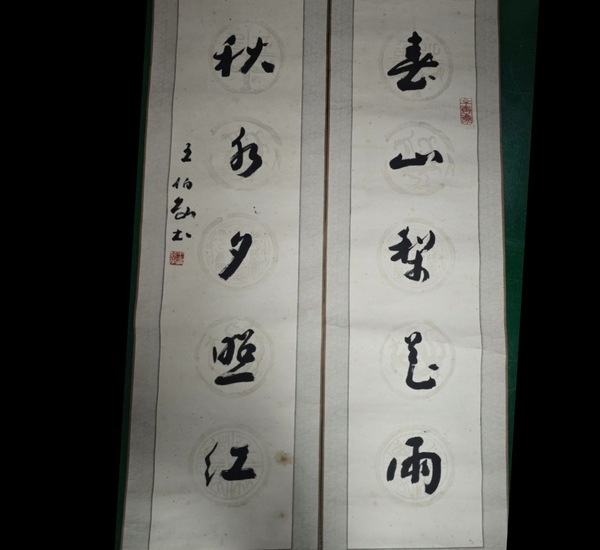 春山梨花雨
秋水夕照红
王伯勋书